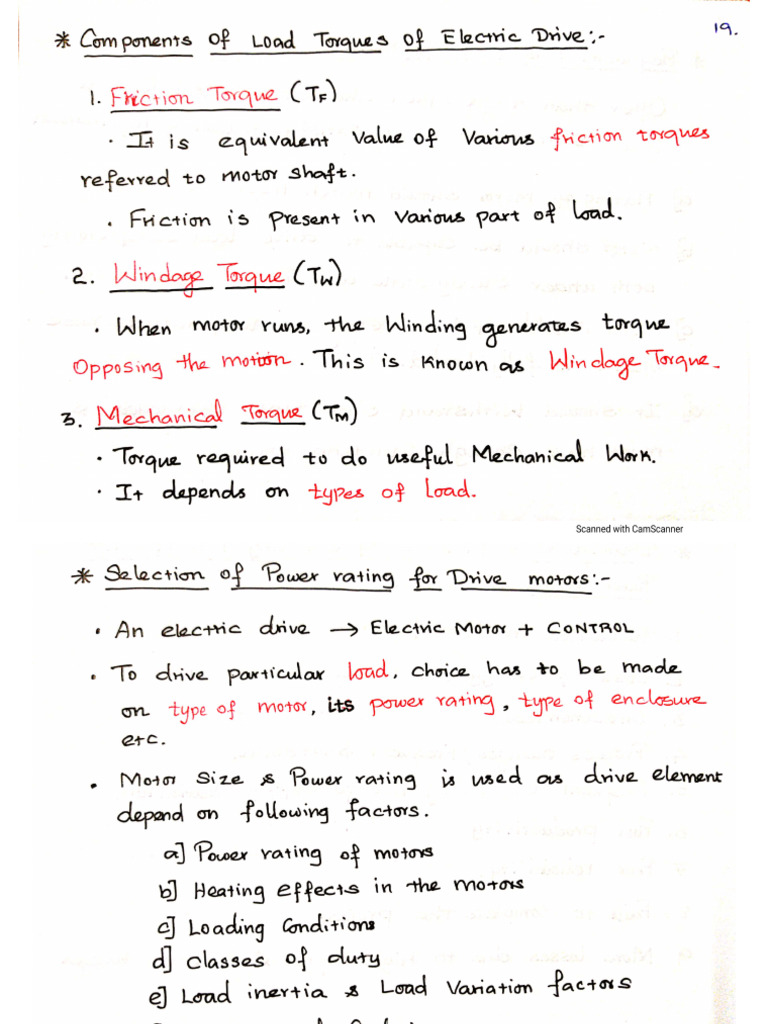 * Components of Load Torques of Electric Drive:-
19.
1. Friction Torque (TF)
· It is equivalent value of various friction torques
referred to motor shaft.
· Friction is present in various part of load.
2. Windage Torque (TW)
· When motor runs, the Winding generates torque
Opposing the motion. This is known as Windage Torque.
3. Mechanical Torque (TM)
· Torque required to do useful Mechanical Work.
· It depends on types of load.
Scanned with CamScanner
* Selection of Power rating for Drive motors:-
· An electric drive → Electric Motor + CONTROL
· To drive particular load, choice has to be made
on type of motor, its power rating, type of enclosure
etc.
· Motor Size & Power rating is used as drive element
depend on following factors.
a] Power rating of motors
b] Heating effects in the motors
c] Loading Conditions
d] Classes of duty
e] Load inertia & Load Variation factors